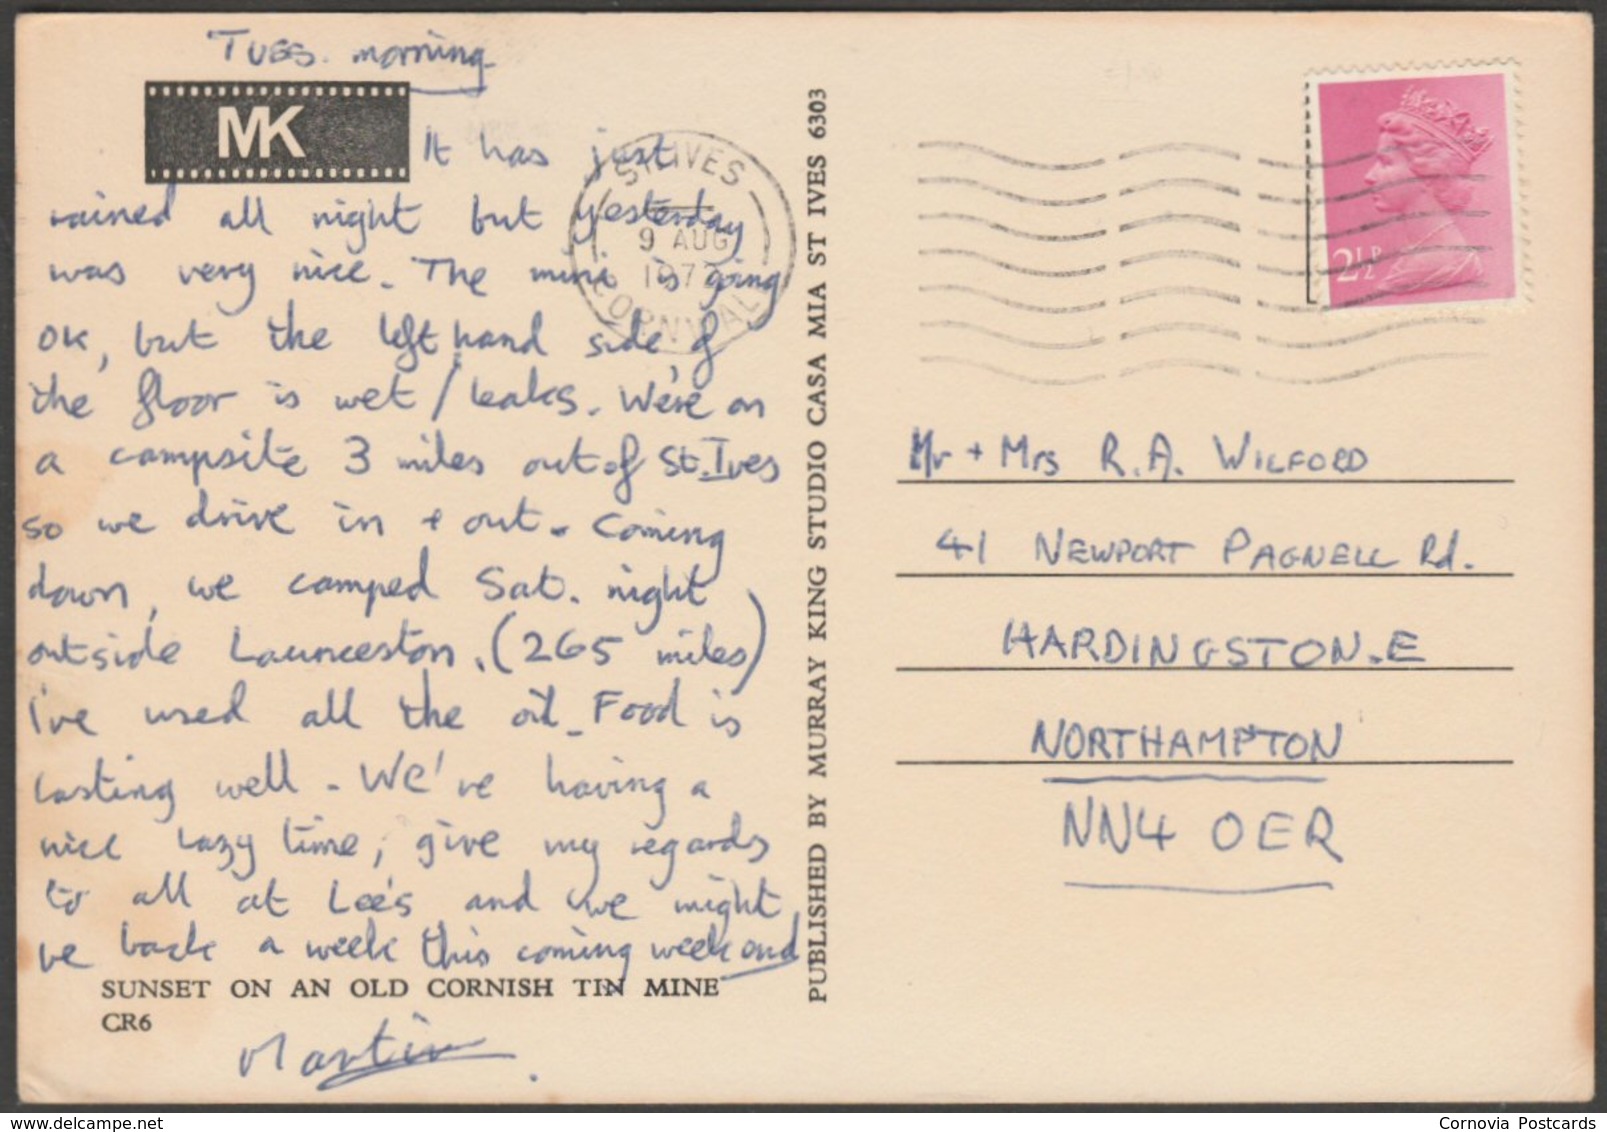 Tues. morning
MK
It has just
rained all night but yesterday
was very nice. The mini is going
OK, but the left hand side of
the floor is wet / leaks. We're on
a campsite 3 miles out of St. Ives
so we drive in + out. Coming
down, we camped Sat. night
outside Launceston. (265 miles)
I've used all the oil. Food is
lasting well. We've having a
nice lazy time, give my regards
to all at Lee's and we might
be back a week this coming weekend
SUNSET ON AN OLD CORNISH TIN MINE
CR6
Martin
PUBLISHED BY MURRAY KING STUDIO CASA MIA ST IVES 6303
ST. IVES
9 AUG
CORNWALL
2½P
Mr + Mrs R.A. WILFORD
41 NEWPORT PAGNELL Rd.
HARDINGSTON.E
NORTHAMPTON
NN4 0ER
delcampe.net
Cornovia Postcards